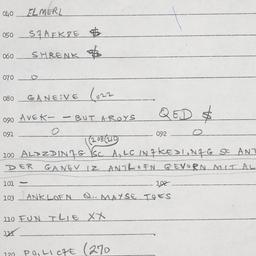 040 ELMERL
050 STAFKRE $
060 SHRENK $
070 O
080 GANEIVE (022
090 AVEK— — BUT AROYS QED $
091 O 092 O
100 ALDZDINTG SC ALC INTKEDI,NTG SC ANT
DER GANEV IZ ANTLOFN GEVORN MIT AL
101 — 102
103 ANKLOFN Q.. MAYSE TOES
110 FUN TLIE XX
115
120 POLICTE (270